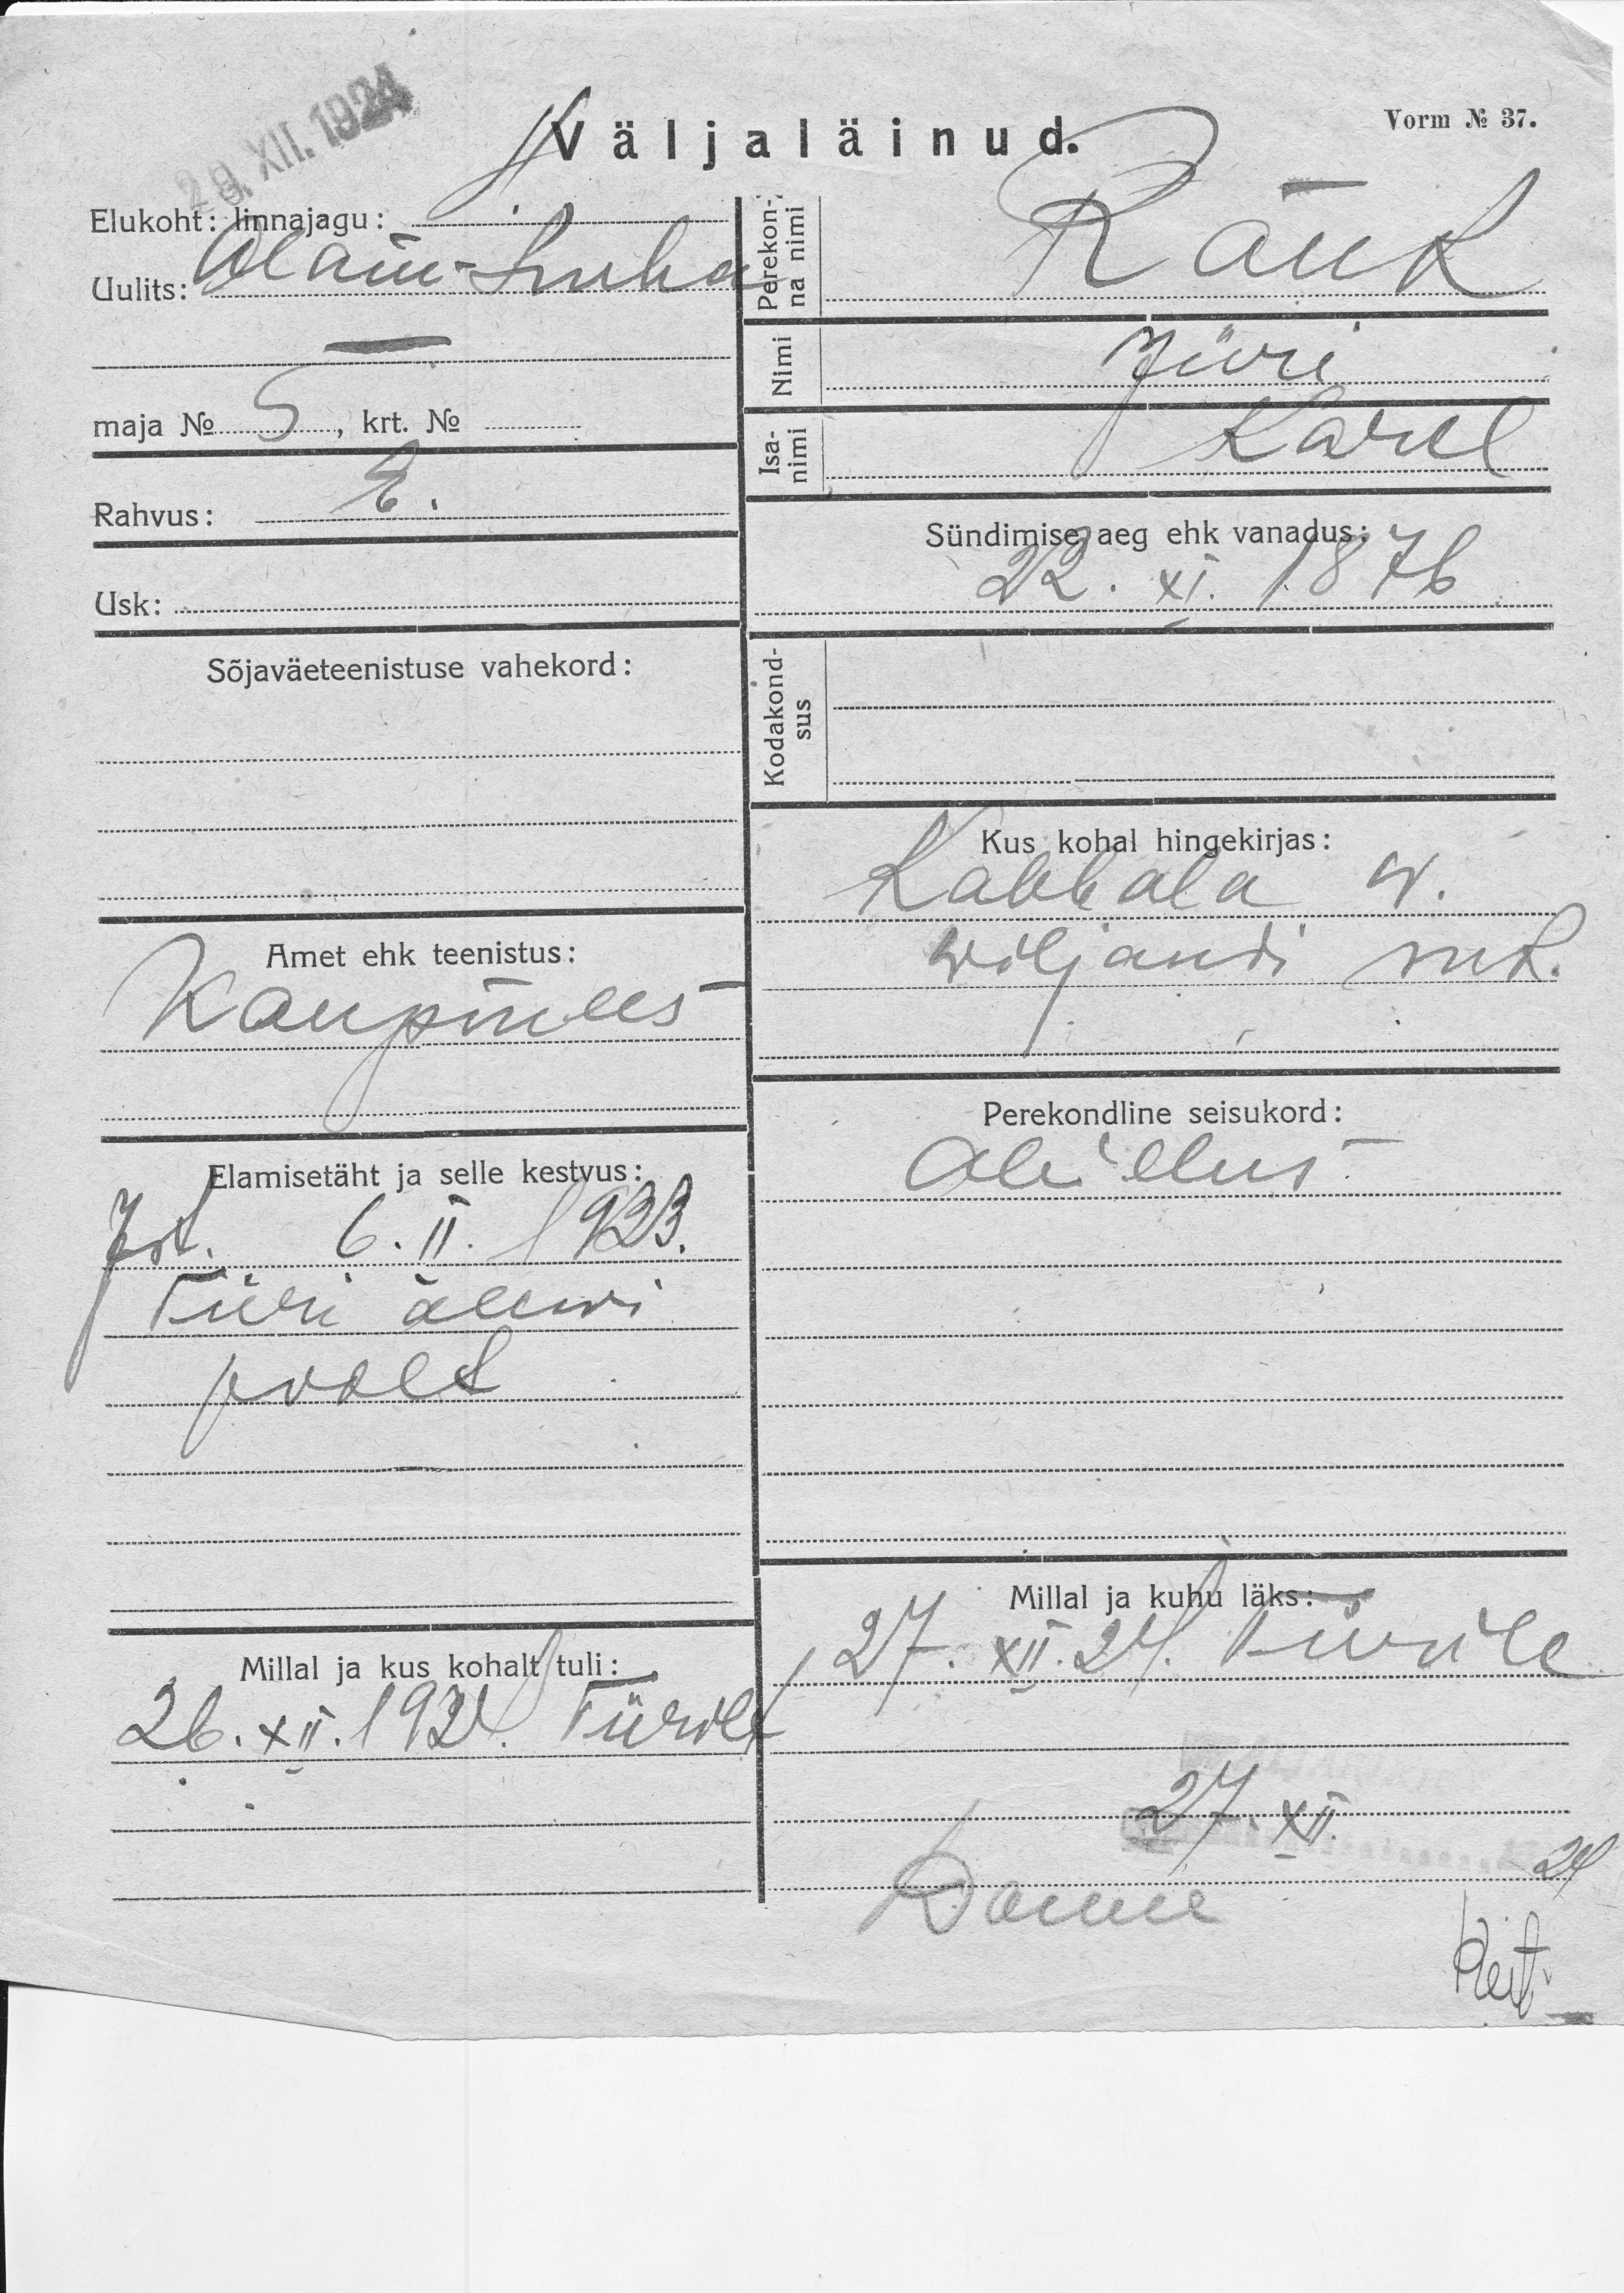 29. XII. 1924
Väljaläinud.
Vorm № 37.
Elukoht: linnajagu:
Uulits: Wana-Luha
maja № 5, krt. №
Rahvus: E.
Usk:
Sõjaväeteenistuse vahekord:
Amet ehk teenistus:
Kaupmees
Elamisetäht ja selle kestvus:
Ist. 6. II. 1923.
Türi alewi
poolt
Millal ja kus kohalt tuli:
26. XII. 1924. Türilt
Perekonna nimi
Ränk
Nimi
Jüri
Isanimi
Karel
Sündimise aeg ehk vanadus:
22. XI. 1876
Kodakondsus
Kus kohal hingekirjas:
Kabbala w.
Wiljandi mk.
Perekondline seisukord:
Abielus
Millal ja kuhu läks:
27. XII. 24. Türile
27. XII.
24